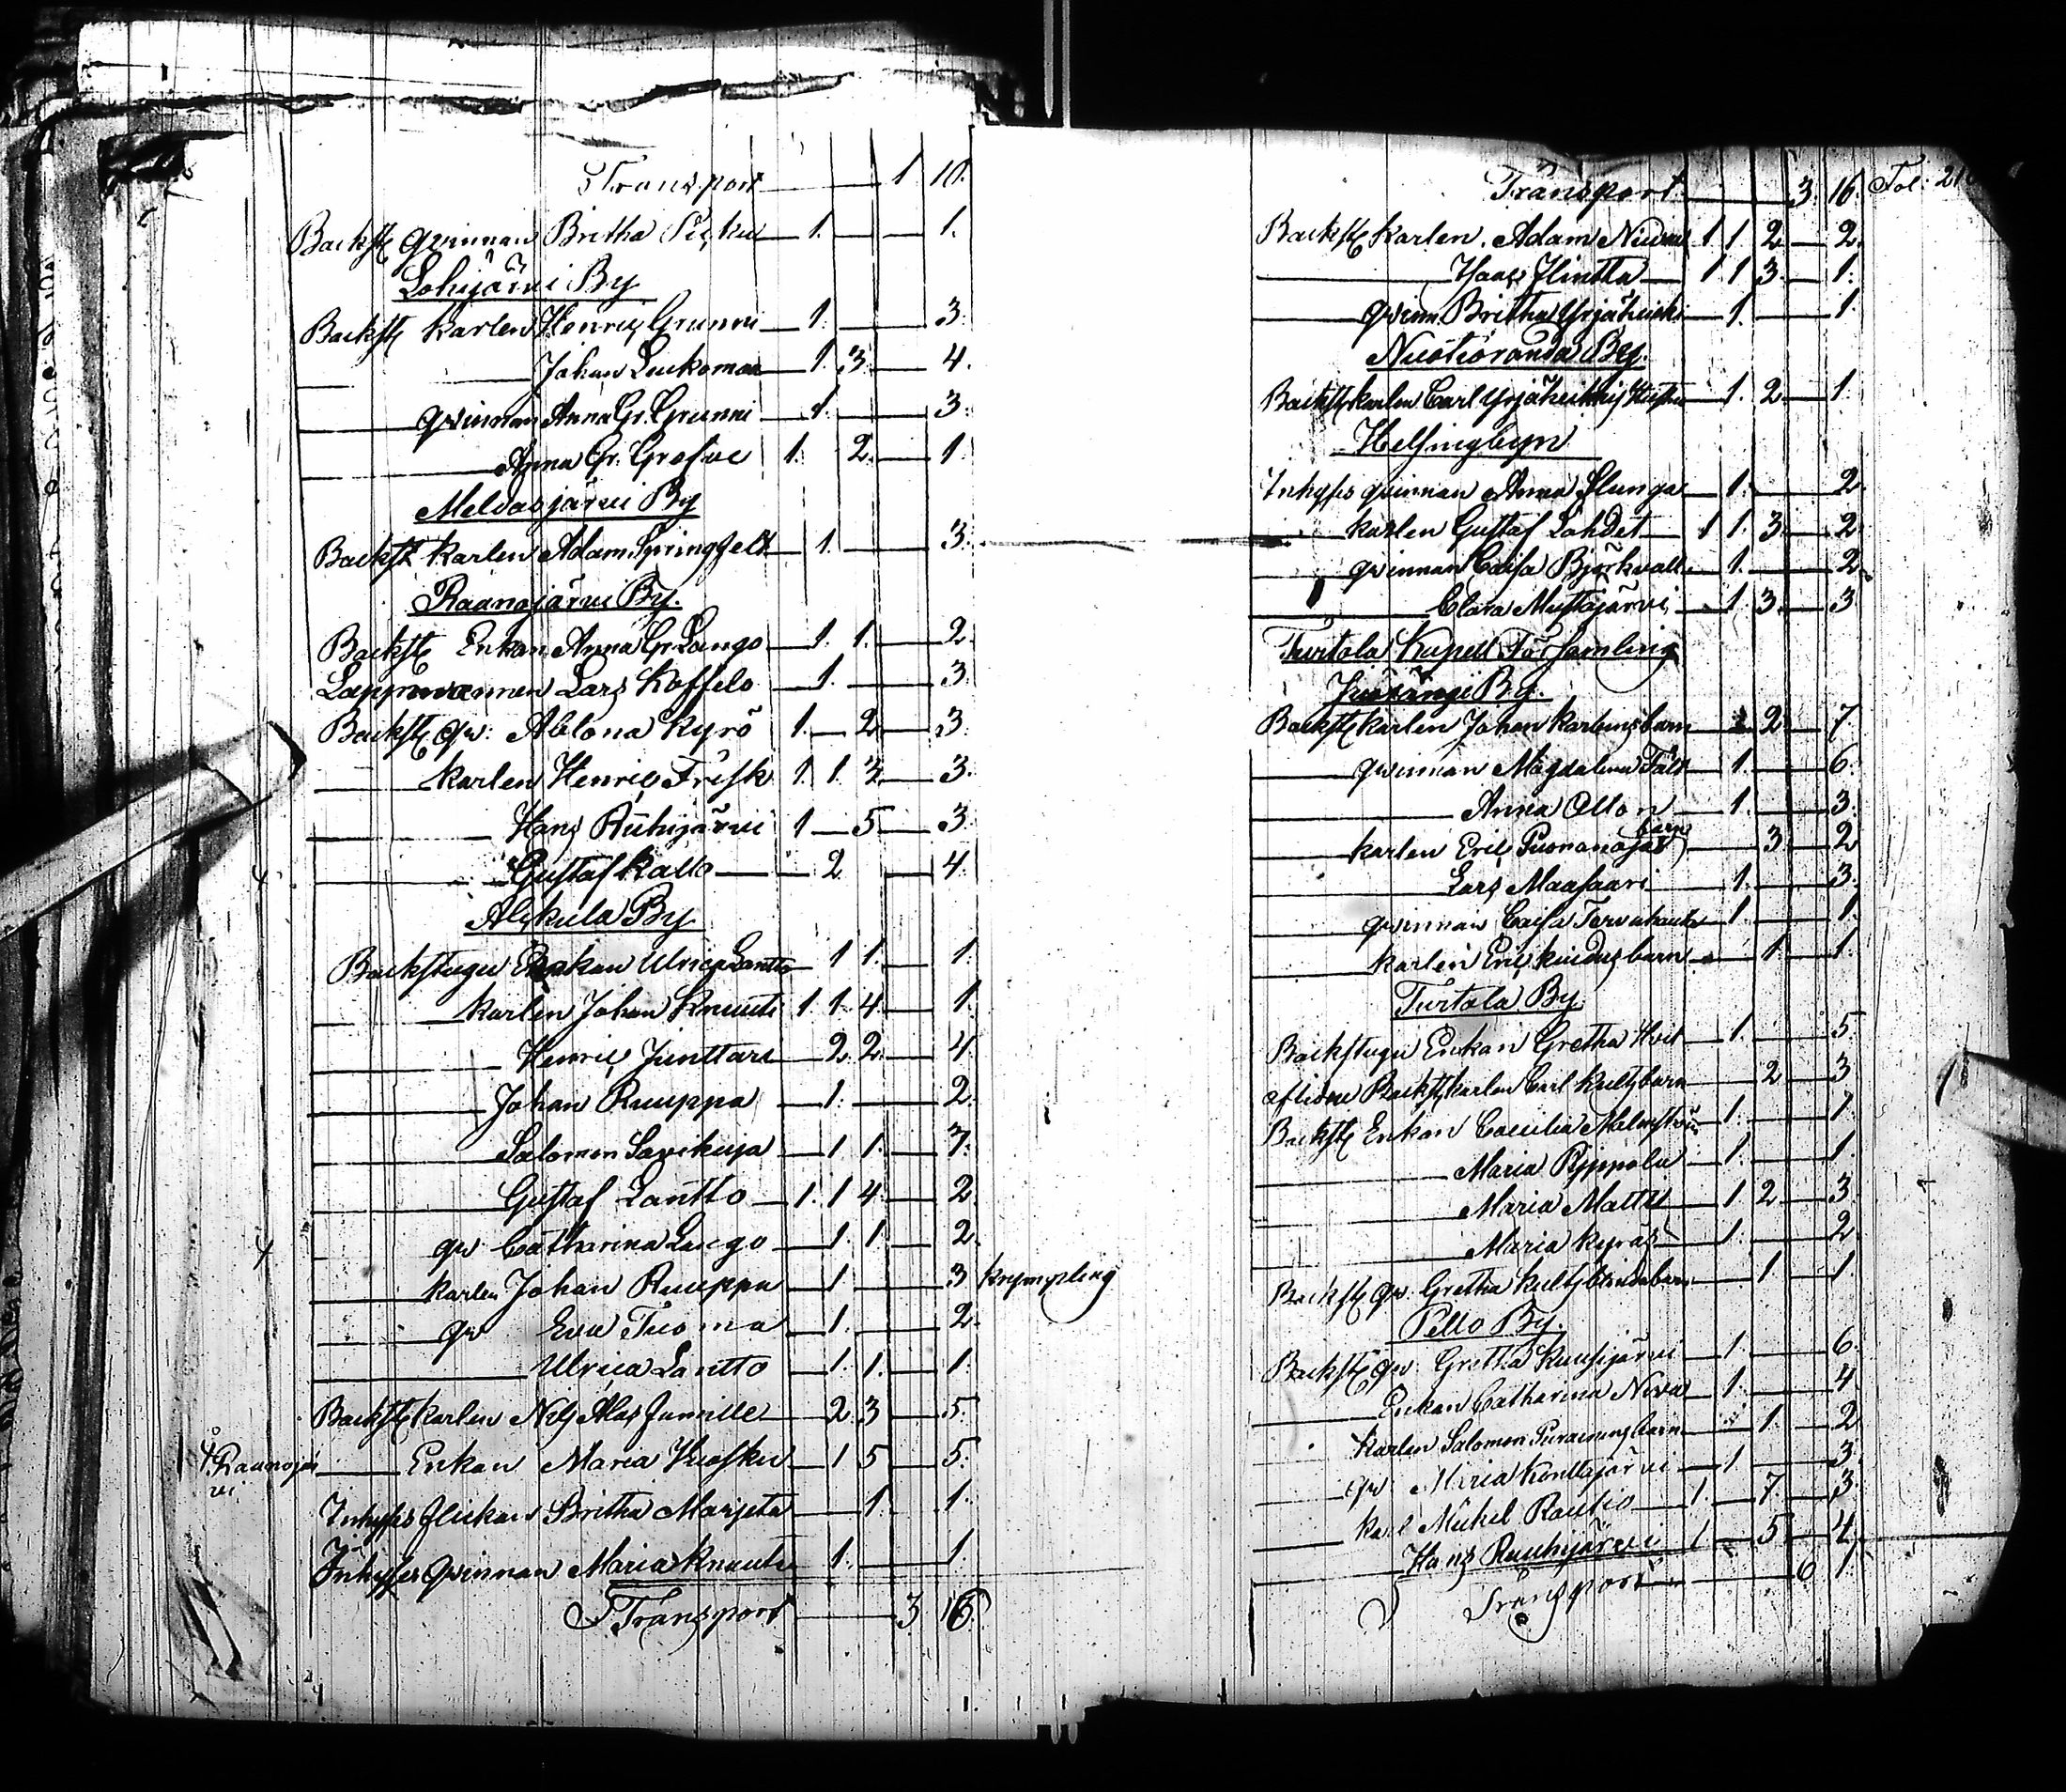 Transport 1 10.
Backst qvinnan Britha 1. 1.
Lohijärvi By
Backst karlen Henric Grunni 1. 3.
Johan Leukoman 1. 3. 4.
qvinnan Anna Gr. Grunni 1. 3.
Anna Gr. Grefve 1. 2. 1.
Meldasjärvi By
Backst karlen Adam Springfelt 1. 3.
Raanojärvi By.
Backst Enkan Anna Gr Lango 1. 1. 2.
Lappmannen Lars Koffelo 1. 3.
Backst qv. Ablona Kyrö 1. 2. 3.
karlen Henric Frisk 1. 1. 3. 3.
Hans Ruhijärvi 1 5 3.
Gustaf Kallo 2 4.
Alckula By
Backstugu Enkan Ulrica Lantto 1 1. 1.
karlen Johan Knuuti 1. 1. 4 1.
Henric Junttari 2. 2. 4.
Johan Ruuppa 1. 2.
Salomon Savikuja 1 1. 7.
Gustaf Lantto 1. 1 4. 2.
qv Catharina Lugo 1 1. 2.
karlen Johan Ruuppa 1. 3 krympling
qv Eva Tuoma 1. 2.
Ulrica Lantto 1. 1. 1.
Backst karlen Nils Alas 2. 3 5.
Raanojärvi Enkan Maria Kuosku 1 5 5.
Inhyses flickan Britha Marjeta 1. 1.
Inhyses qvinnan Maria Knuuti 1. 1.
Transport 3 16.
Transport 3. 16.
Fol:
Backst karlen. Adam Niva 1. 1. 2 2.
Hans Flintta 1 1 3. 1.
qvinn. Britha Yrjäheikki 1. 1.
Nuotioranda By.
Backst karlen Carl Yrjäheikki 1. 2. 1.
Helsingbyn
Inhyses qvinnan Anna Slunga 1. 2.
karlen Gustaf Lahdet 1 1. 3. 2.
qvinnan Caisa Björkvall 1. 2.
Clara Mustajärvi 1. 3. 3
Turtola Kapell Församling
Juoxänge By.
Backst karlen Johan Karlungs barn 2. 7.
qvinnan Magdalena Fält 1. 6.
Anna Ollon 1. 3.
karlen Eric barn 3. 2
Lars Maasaari 1. 3.
qvinnan Caisa Tervahauta 1. 1.
karlen Eric barn 1. 1.
Turtola By
Backstugu Enkan Gretha Hvit 1. 5.
aflidne Backst karlen Carl barn 2. 3
Backst Enkan Caecilia Malmström 1. 1.
Maria Pyppola 1. 1.
Maria Matti 1. 2. 3.
Maria Kyrös 1. 2.
Backst qv. Gretha barn 1. 1.
Pello By.
Backst qv. Gretha Kuusijärvi 1. 6.
Enkan Catharina Niva 1. 4
karlen Salomon barn 1. 2
qv. Maria Konttajärvi 1. 3.
karl Michel Rautio 1. 7. 3
Hans Ruuhijärvi 1 5 4.
Transport 6 1.